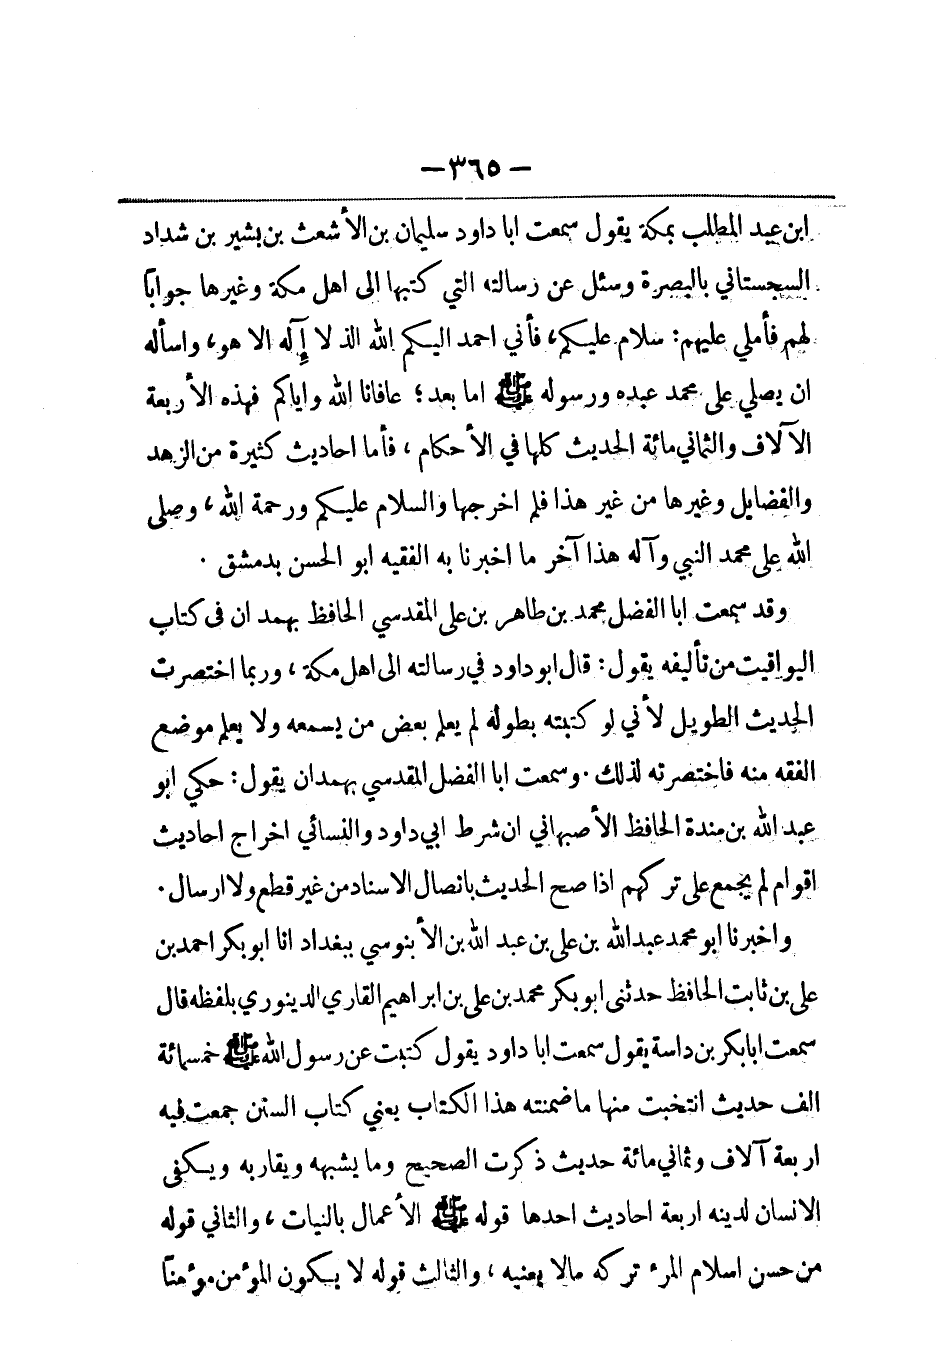 — ٣٦٥ —
ابن عبد المطلب بمكة يقول سمعت ابا داود سليمان بن الأشعث بن بشير بن شداد
السجستاني بالبصرة وسئل عن رسالته التي كتبها الى اهل مكة وغيرها جواباً
لهم فأملي عليهم: سلام عليكم، فأني احمد اليكم الله الذ لا إله الا هو، واسأله
ان يصلي على محمد عبده ورسوله ﷺ اما بعد؛ عافانا الله واياكم فهذه الأربعة
الآلاف والثماني مائة الحديث كلها في الأحكام، فأما احاديث كثيرة من الزهد
والفضايل وغيرها من غير هذا فلم اخرجها والسلام عليكم ورحمة الله، وصلى
الله على محمد النبي وآله هذا آخر ما اخبرنا به الفقيه ابو الحسن بدمشق .
وقد سمعت ابا الفضل محمد بن طاهر بن على المقدسي الحافظ بهمد ان فى كتاب
اليواقيت من تأليفه يقول: قال ابو داود في رسالته الى اهل مكة، وربما اختصرت
الحديث الطويل لأني لو كتبته بطوله لم يعلم بعض من يسمعه ولا يعلم موضع
الفقه منه فاختصرته لذلك . وسمعت ابا الفضل المقدسي بهمدان يقول: حكي ابو
عبد الله بن مندة الحافظ الأصبهاني ان شرط ابي داود والنسائي اخراج احاديث
اقوام لم يجمع على تركهم اذا صح الحديث باتصال الاسناد من غير قطع ولا ارسال .
واخبرنا ابو محمد عبد الله بن على بن عبد الله بن الأبنوسي ببغداد انا ابو بكر احمد بن
على بن ثابت الحافظ حدثنى ابو بكر محمد بن على بن ابراهيم القاري الدينوري بلفظه قال
سمعت ابا بكر بن داسة يقول سمعت ابا داود يقول كتبت عن رسول الله ﷺ خمسمائة
الف حديث انتخبت منها ما ضمنته هذا الكتاب يعني كتاب السنن جمعت فيه
اربعة آلاف وثماني مائة حديث ذكرت الصحيح وما يشبهه ويقاربه ويكفى
الانسان لدينه اربعة احاديث احدها قوله ﷺ الأعمال بالنيات، والثاني قوله
من حسن اسلام المرء تركه مالا يعنيه، والثالث قوله لا يكون المؤمن مؤمناً